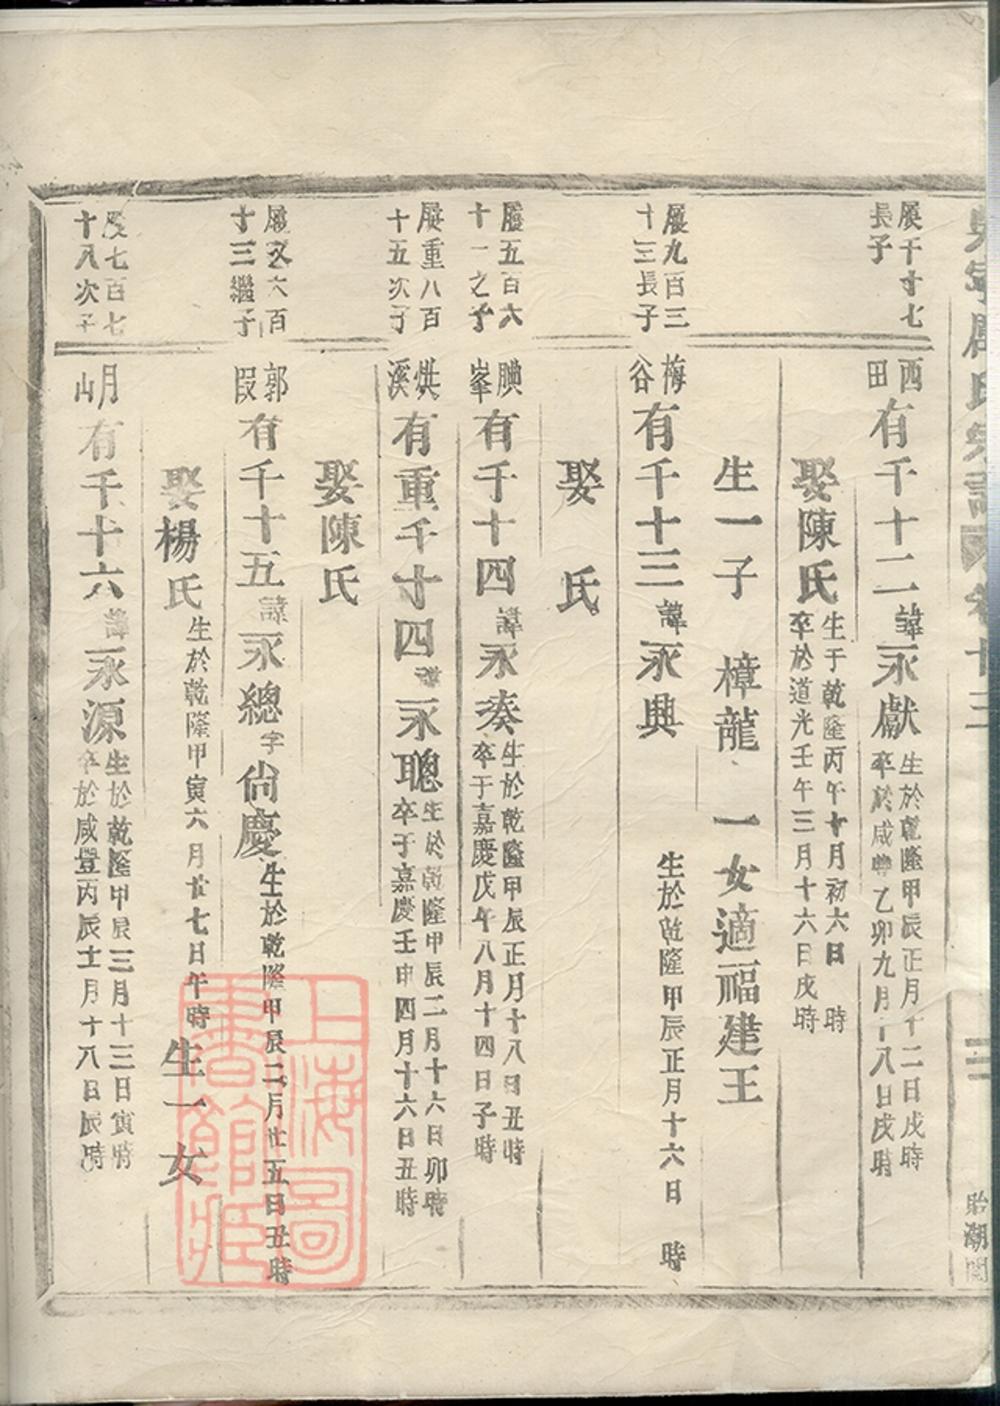 展千十七
長子
西田
有千十二諱永獻
生於乾隆甲辰正月十二日戌時
卒於咸豐乙卯九月十八日戌時
娶陳氏
生于乾隆丙午十月初六日 時
卒於道光壬午三月十六日戌時
生一子 樟龍 一女適福建王
展九百三
十三長子
梅谷
有千十三諱永典
生於乾隆甲辰正月十六日 時
娶 氏
展五百六
十一之子
腆峯
有千十四諱永湊
生於乾隆甲辰正月十八日丑時
卒于嘉慶戊午八月十四日子時
展重八百
十五次子
烘溪
有重千十四諱永聰
生於乾隆甲辰二月十六日卯時
卒于嘉慶壬申四月十六日丑時
娶陳氏
展文六百
十三繼子
郭叚
有千十五諱永總字尙慶
生於乾隆甲辰二月廿五日丑時
娶楊氏
生於乾隆甲寅六月廿七日午時
生一女
展七百七
十八次子
月山
有千十六諱永源
生於乾隆甲辰三月十三日寅時
卒於咸豐丙辰十二月十八日辰時
周氏宗譜 卷十三
貽潮閣
上海圖書館藏